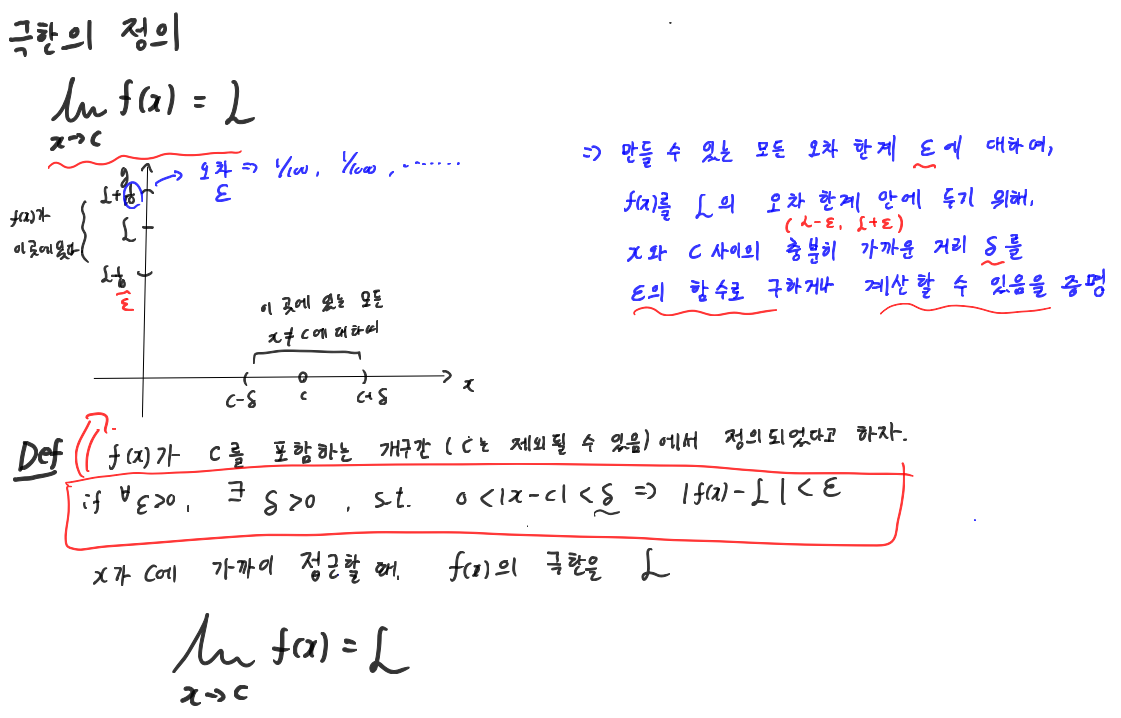 극한의 정의
lim f(x) = L
x→c
y
오차 ⇒ 1/100, 1/1000, .......
ε
L+
f(x)가
이 곳에 있다
L
L-
ε
이 곳에 있는 모든
x≠c에 대하여
x
c-δ c c+δ
⇒ 만들 수 있는 모든 오차 한계 ε에 대하여,
f(x)를 L의 오차 한계 안에 두기 위해,
(L-ε, L+ε)
x와 c 사이의 충분히 가까운 거리 δ를
ε의 함수로 구하거나 계산할 수 있음을 증명
Def f(x)가 c를 포함하는 개구간 (c는 제외될 수 있음)에서 정의되었다고 하자.
if ∀ε>0, ∃ δ>0, s.t. 0<|x-c|<δ ⇒ |f(x)-L|<ε
x가 c에 가까이 접근할 때, f(x)의 극한을 L
lim f(x) = L
x→c